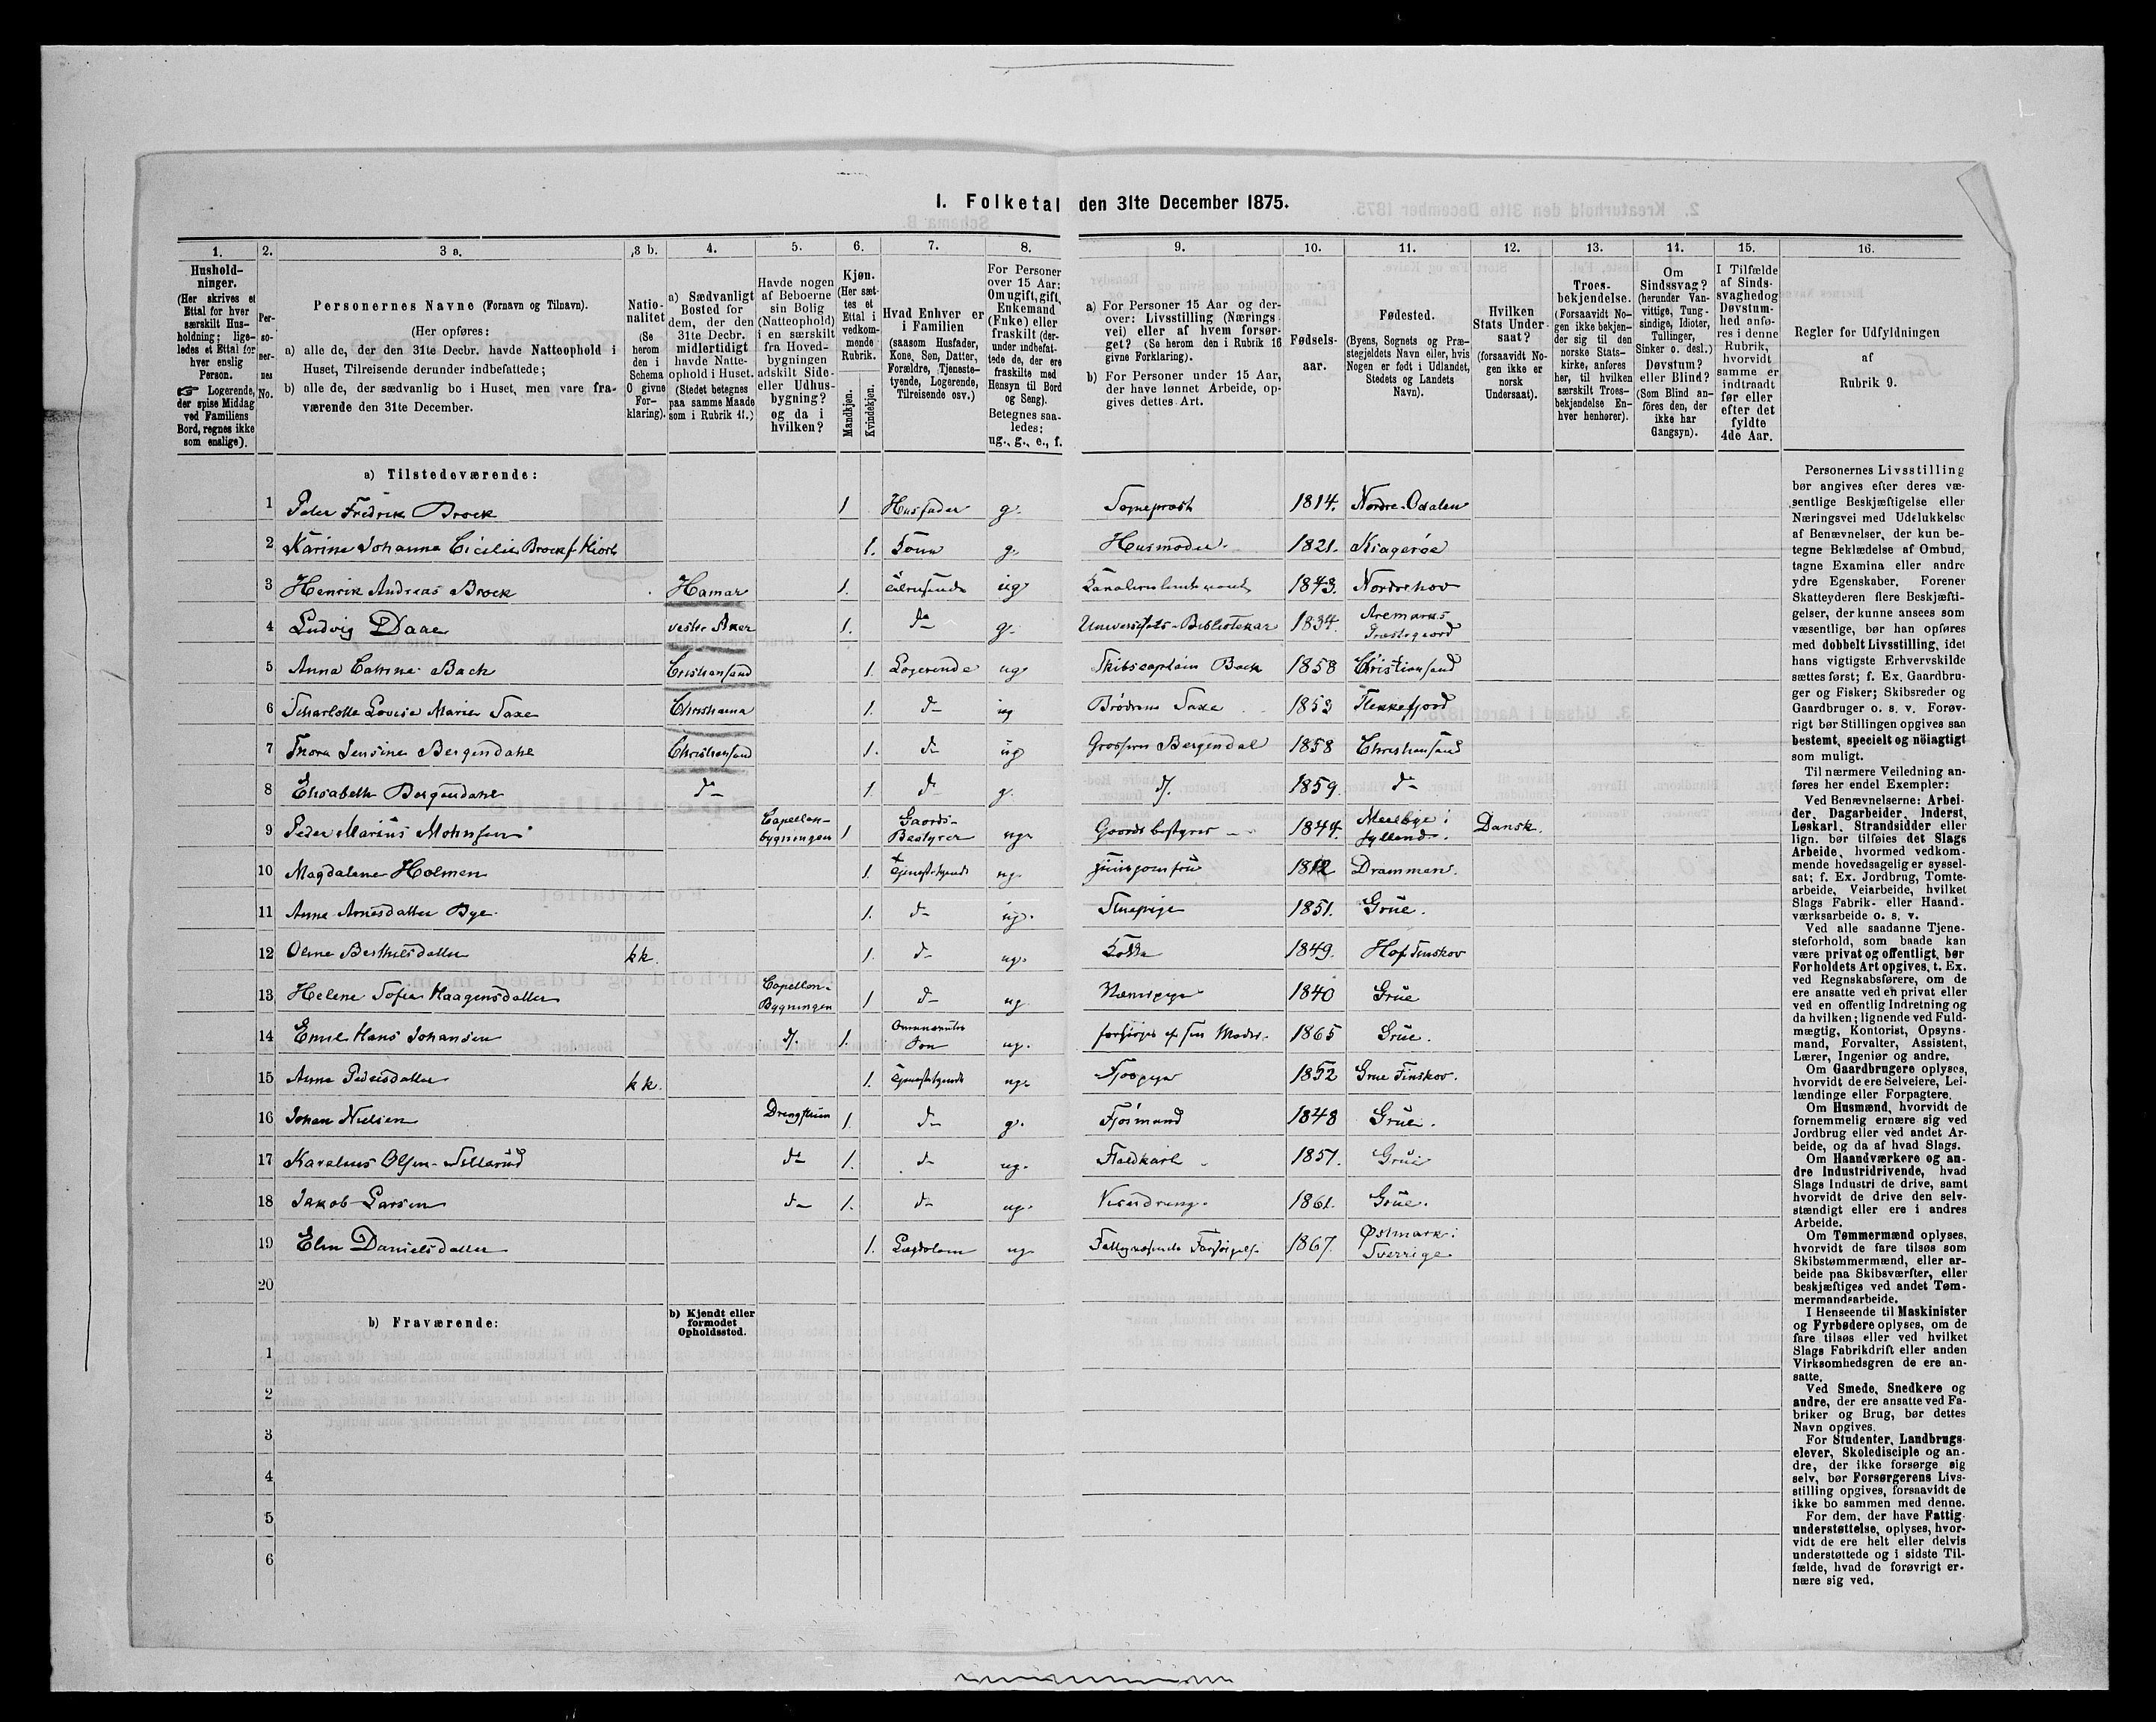 I. Folketal den 31te December 1875.
1.
Hushold-
ninger.
(Her skrives et
Ettal for hver
særskilt Hus-
holdning; lige-
ledes et Ettal for
hver enslig
Person.
☞ Logerende,
der spise Middag
ved Familiens
Bord, regnes ikke
som enslige).
2.
Per-
so-
ner-
nes
No.
3 a.
Personernes Navne (Fornavn og Tilnavn).
(Her opføres:
a) alle de, der den 31te Decbr. havde Natteophold i
Huset, Tilreisende derunder indbefattede;
b) alle de, der sædvanlig bo i Huset, men vare fra-
værende den 31te December.
3 b.
Natio-
nalitet
(Se
herom
den i
Schema
O givne
For-
klaring).
4.
a) Sædvanligt
Bosted for
dem, der den
31te Decbr.
midlertidigt
havde Natte-
ophold i Huset.
(Stedet betegnes
paa samme Maade
som i Rubrik 11.)
5.
Havde nogen
af Beboerne
sin Bolig
(Natteophold)
i en særskilt
fra Hoved-
bygningen
adskilt Side-
eller Udhus-
bygning?
og da i
hvilken?
6.
Kjøn.
(Her sæt-
tes et
Ettal i
vedkom-
mende
Rubrik.
Mandkjøn.
Kvindekjøn.
7.
Hvad Enhver er
i Familien
(saasom Husfader,
Kone, Søn, Datter,
Forældre, Tjeneste-
tyende, Logerende,
Tilreisende osv.)
8.
For Personer
over 15 Aar:
Om ugift, gift,
Enkemand
(Enke) eller
fraskilt (der-
under indbefat-
tede de, der ere
fraskilte med
Hensyn til Bord
og Seng).
Betegnes saa-
ledes:
ug., g., e., f.
9.
a) For Personer 15 Aar og der-
over: Livsstilling (Nærings-
vei) eller af hvem forsør-
get? (Se herom den i Rubrik 16
givne Forklaring).
b) For Personer under 15 Aar,
der have lønnet Arbeide, op-
gives dettes Art.
10.
Fødsels-
aar.
11.
Fødested.
(Byens, Sognets og Præ-
stegjeldets Navn eller, hvis
Nogen er født i Udlandet,
Stedets og Landets
Navn).
12.
Hvilken
Stats Under-
saat?
(forsaavidt No-
gen ikke er
norsk
Undersaat).
13.
Troes-
bekjendelse.
(Forsaavidt No-
gen ikke bekjen-
der sig til den
norske Stats-
kirke, anføres
her, til hvilken
særskilt Troes-
bekjendelse En-
hver henhører).
14.
Om
Sindssvag?
(herunder Van-
vittige, Tung-
sindige, Idioter,
Tullinger,
Sinker o. desl.)
Døvstum?
eller Blind?
(Som Blind an-
föres den, der
ikke har
Gangsyn).
15.
I Tilfælde
af Sinds-
svaghed og
Døvstum-
hed anfø-
res i denne
Rubrik,
hvorvidt
samme er
indtraadt
før eller
efter det
fyldte
4de Aar.
16.
Regler for Udfyldningen
af
Rubrik 9.
a) Tilstedeværende:
1 Peter Fredrik Brock 1 Husfader g. Sogneprest 1814. Nordre-Odalen
2 Karine Johanna Cicilie Brock f. Hiort 1. Kone g. Husmoder. 1821. Kragerøe
3 Henrik Andreas Brock Hamar 1. Tilreisende ug 1843. Norderhov
4 Ludvig Daae vestre Aker 1. do g. Universitets-Bibliotekar 1834. Aremarks Præstegaard
5 Anna Catrine Bach Cristiansand 1. Logerende ug Skibscaptain Back 1858 Christiansand
6 Scharlotte Lovise Marie Saxe Christiania 1. do ug Brødrene Saxe 1853 Flekkefjord
7 Thora Jensine Bergendahl Christiansand 1. do ug Grosserer Bergendal 1858 Christiansand
8 Elisabeth Bergendahl do 1. do g. do. 1859. do
9 Peder Marius Mohnsen Capellan-bygningen 1 Gaards-Bestyrer ug. Gaardsbestyrer 1844. Meelbye i Jylland. Dansk.
10 Magdalene Holmen 1. Tjenestetyende ug. Huusjomfru 1842 Drammen.
11 Anne Arnesdatter Bye. 1. do ug. Stuepige 1851. Grue.
12 Oline Berthelsdatter kk. 1. do ug. Kokke 1849. Hof Finskov
13 Helene Sofia Haagensdatter Capellan-Bygningen 1 do ug 1840 Grue
14 Emil Hans Johansen do. 1. Søn ug. forsørges af sin Moder. 1865 Grue.
15 Anne Pedersdatter kk. 1. Tjenestetyende ug. Fjøspige 1852 Grue Finskov.
16 Johan Nielsen Drengstuen 1. do g. Fjøsmand 1848 Grue.
17 Karelius Olsen-Sillerud do 1. do ug. Staldkarl 1851. Grue
18 Jakob Larsen do 1. do ug. Viserdreng. 1861. Grue.
19 Elin Danielsdatter 1. Lægdslem ug. Fattigvæsenets Forsørgelse 1867. Østmark i Sverrige
20
b) Fraværende:
b) Kjendt eller
formodet
Opholdssted.
1
2
3
4
5
6
Personernes Livsstilling
bør angives efter deres væ-
sentlige Beskjæftigelse eller
Næringsvei med Udelukkelse
af Benævnelser, der kun be-
tegne Beklædelse af Ombud,
tagne Examina eller andre
ydre Egenskaber. Forener
Skatteyderen flere Beskjæfti-
gelser, der kunne ansees som
væsentlige, bør han opføres
med dobbelt Livsstilling, idet
hans vigtigste Erhvervskilde
sættes først; f. Ex. Gaardbru-
ger og Fisker; Skibsreder og
Gaardbruger o. s. v. Forøv-
rigt bør Stillingen opgives saa
bestemt, specielt og nöiagtigt
som muligt.
Til nærmere Veiledning an-
føres her endel Exempler:
Ved Benævnelserne: Arbei-
der, Dagarbeider, Inderst,
Løskarl, Strandsidder eller
lign. bør tilføies det Slags
Arbeide, hvormed vedkom-
mende hovedsagelig er syssel-
sat; f. Ex. Jordbrug, Tomte-
arbeide, Veiarbeide, hvilket
Slags Fabrik- eller Haand-
værksarbeide o. s. v.
Ved alle saadanne Tjene-
steforhold, som baade kan
være privat og offentligt, bør
Forholdets Art opgives, t. Ex.
ved Regnskabsførere, om de
ere ansatte ved en privat eller
ved en offentlig Indretning og
da hvilken; lignende ved Fuld-
mægtig, Kontorist, Opsyns-
mand, Forvalter, Assistent,
Lærer, Ingeniør og andre.
Om Gaardbrugere oplyses,
hvorvidt de ere Selveiere, Lei-
lændinge eller Forpagtere.
Om Husmænd, hvorvidt de
fornemmelig ernære sig ved
Jordbrug eller ved andet Ar-
beide, og da af hvad Slags.
Om Haandværkere og an-
dre Industridrivende, hvad
Slags Industri de drive, samt
hvorvidt de drive den selv-
stændigt eller ere i andres
Arbeide.
Om Tømmermænd oplyses,
hvorvidt de fare tilsøs som
Skibstømmermænd, eller ar-
beide paa Skibsværfter, eller
beskjæftiges ved andet Tøm-
mermandsarbeide.
I Henseende til Maskinister
og Fyrbødere oplyses, om de
fare tilsøs eller ved hvilket
Slags Fabrikdrift eller anden
Virksomhedsgren de ere an-
satte.
Ved Smede, Snedkere og
andre, der ere ansatte ved Fa-
briker og Brug, bør dettes
Navn opgives.
For Studenter, Landbrugs-
elever, Skoledisciple og an-
dre, der ikke forsørge sig
selv, bør Forsørgerens Livs-
stilling opgives, forsaavidt de
ikke bo sammen med denne.
For dem, der have Fattig-
understøttelse, oplyses, hvor-
vidt de ere helt eller delvis
understøttede og i sidste Til-
fælde, hvad de forøvrigt er-
nære sig ved.